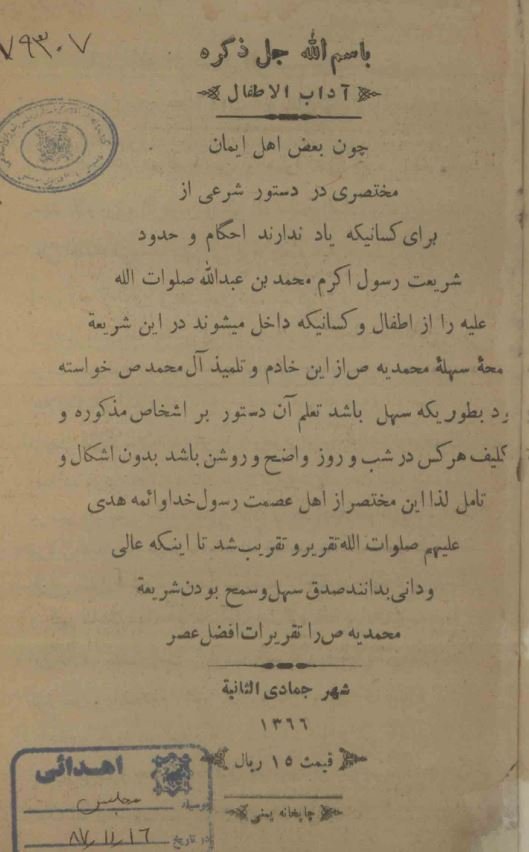 ۷۹۳۰۷
باسم الله جل ذکره
آداب الاطفال
چون بعض اهل ایمان
مختصری در دستور شرعی از
برای کسانیکه یاد ندارند احکام و حدود
شریعت رسول اکرم محمد بن عبدالله صلوات الله
علیه را از اطفال و کسانیکه داخل میشوند در این شریعة
محهٔ سهلهٔ محمدیه ص از این خادم و تلمیذ آل محمد ص خواسته
رد بطوریکه سهل باشد تعلم آن دستور بر اشخاص مذکوره و
کلیف هر کس در شب و روز واضح و روشن باشد بدون اشکال و
تامل لذا این مختصر از اهل عصمت رسول خدا و ائمه هدی
علیهم صلوات الله تقریر و تقریب شد تا اینکه عالی
و دانی بدانند صدق سهل و سمح بودن شریعة
محمدیه ص را تقریرات افضل عصر
شهر جمادی الثانیة
۱۳۶۶
قیمت ۱۵ ریال
چاپخانه یمنی
اهدائی
بوسیله مجلس
در تاریخ ۸۷٫۱۱٫۱۶